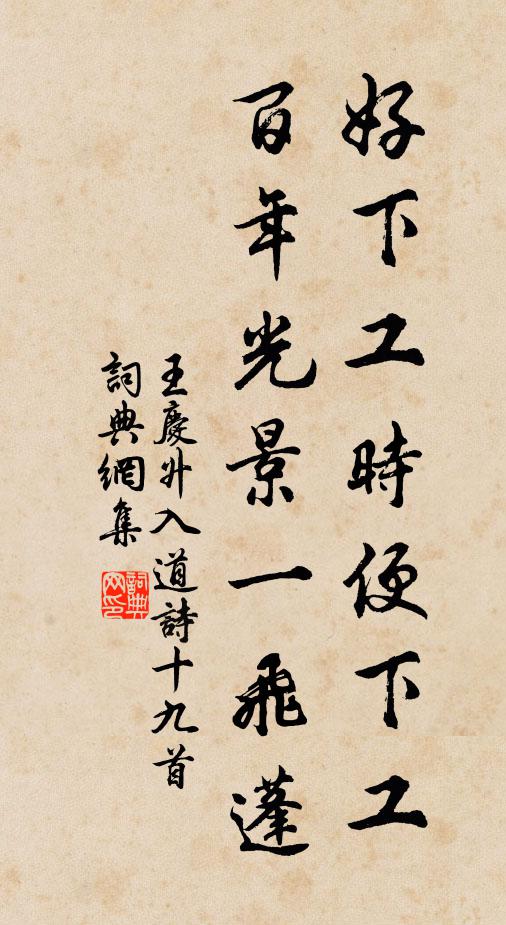 好下工時便下工
百年光景一飛蓬
王慶升入道詩十九首
詞典網集
詞典
网印